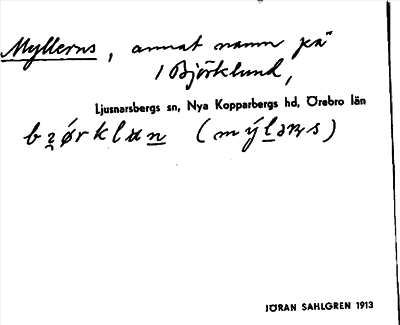 Myllerns, annat namn på
1 Björklund,
Ljusnarsbergs sn, Nya Kopparbergs hd, Örebro län
JÖRAN SAHLGREN 1913